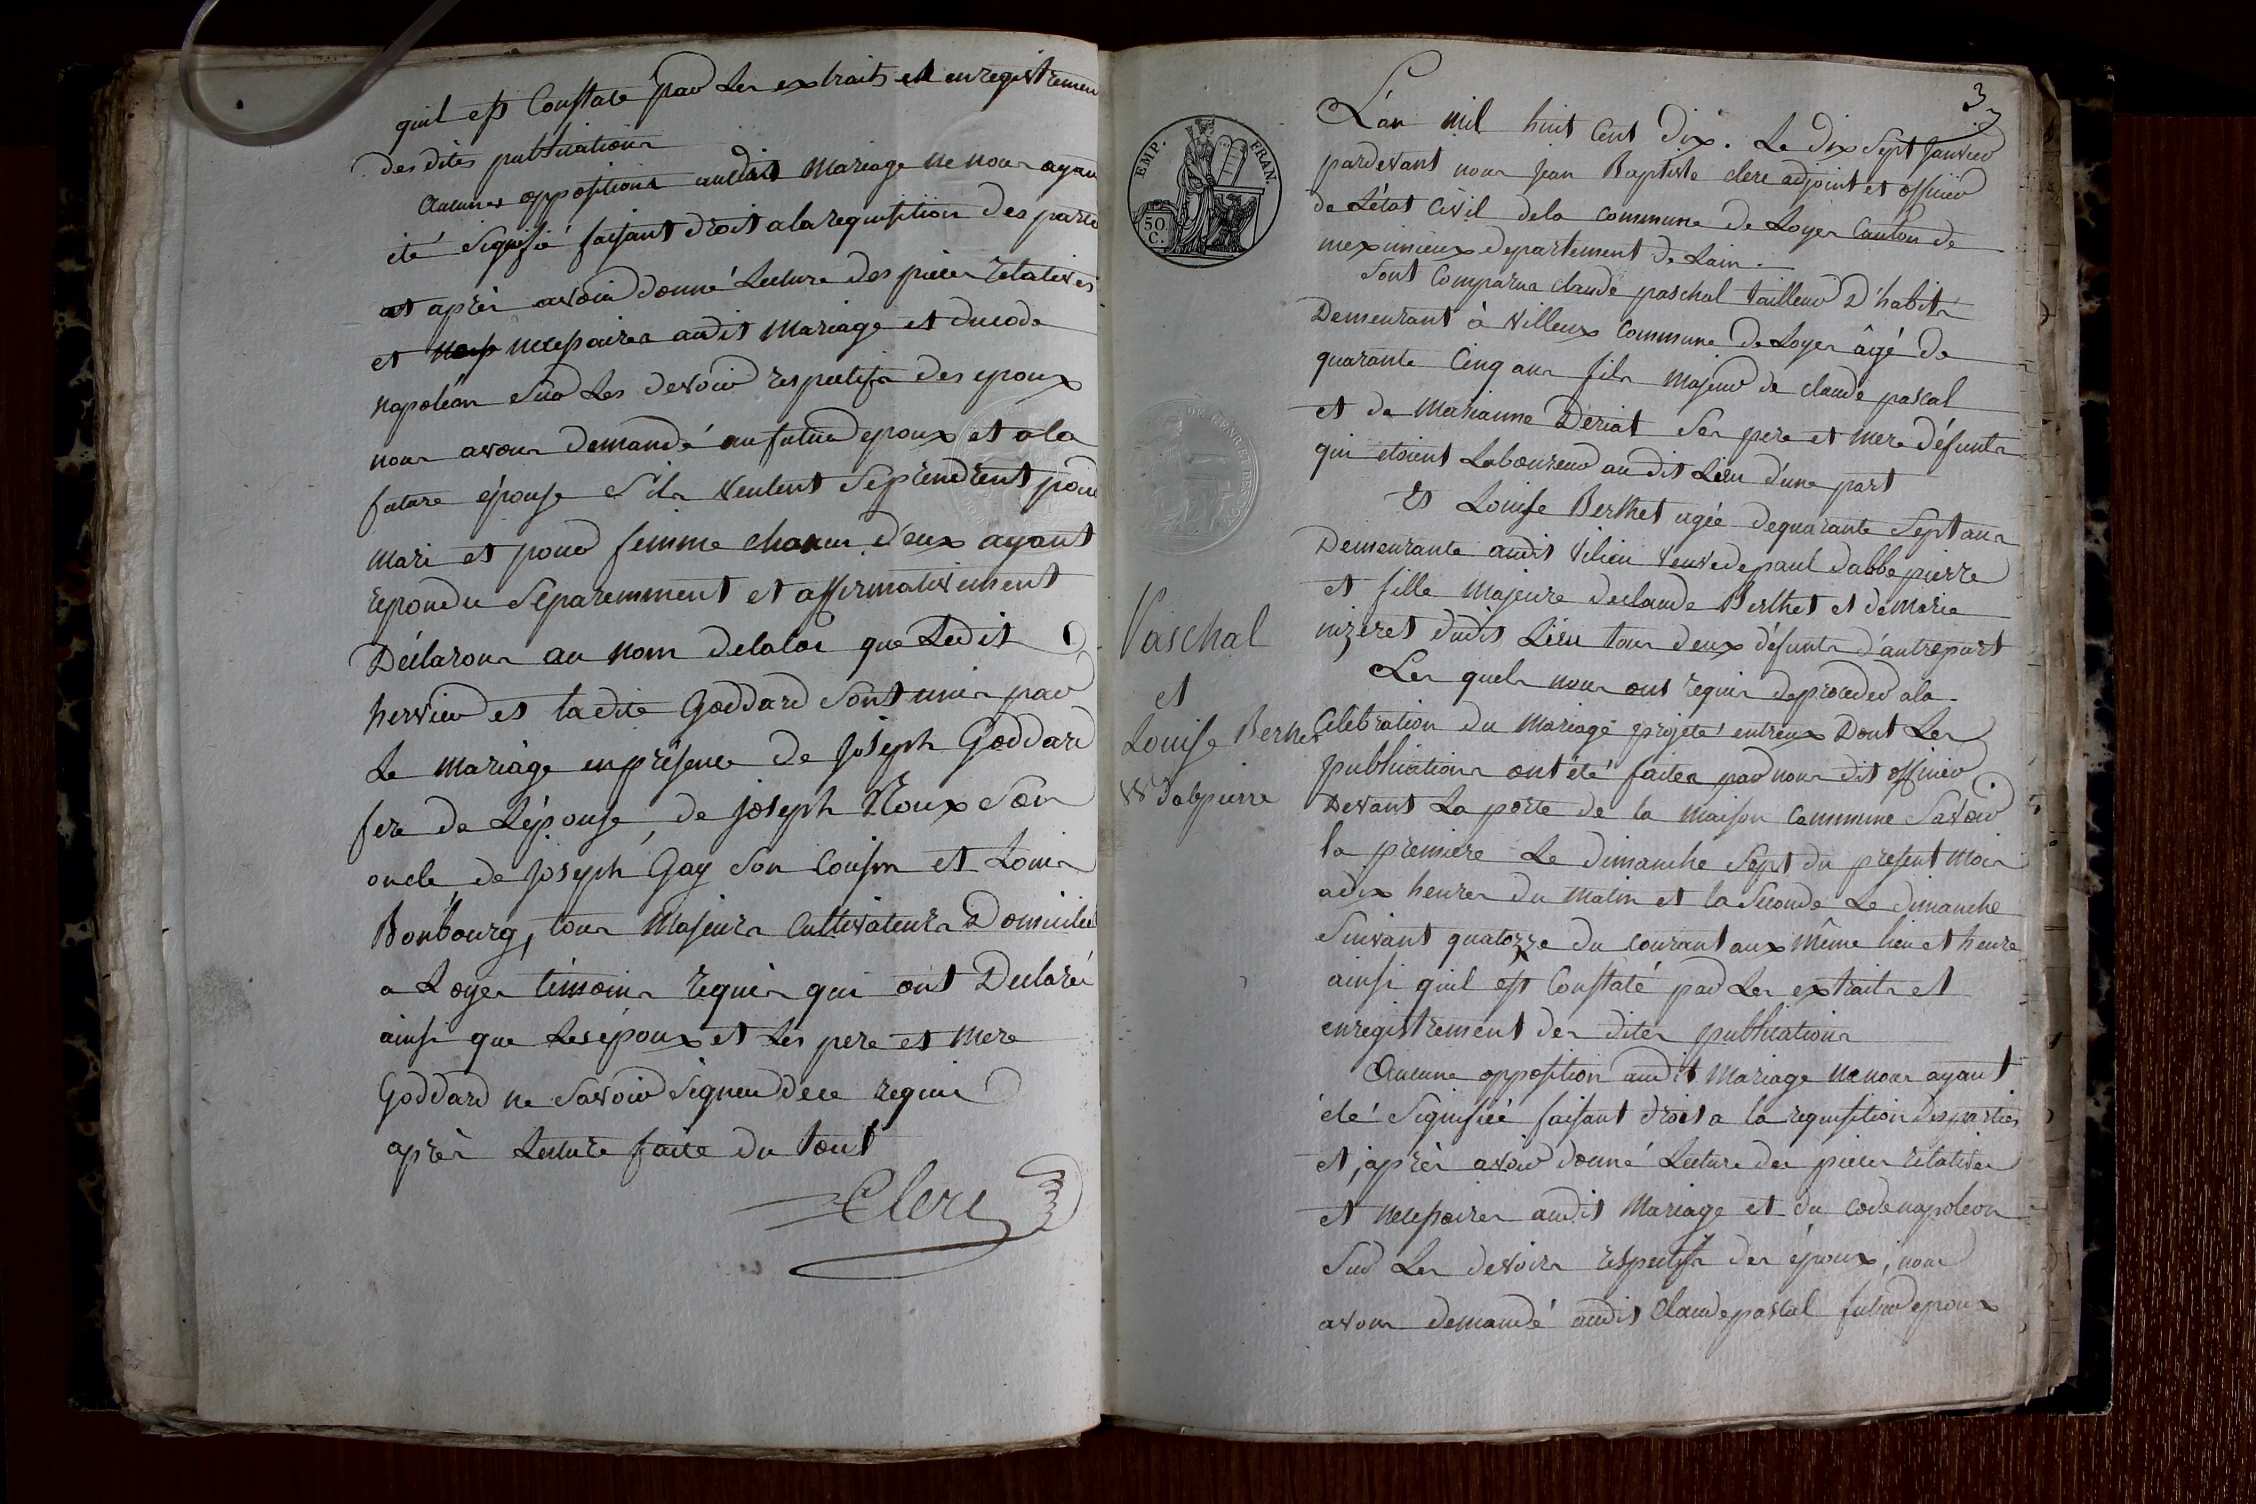 quil est Constaté par les extraits et enregistremen
des dites publications
Aucunes oppositions audit mariage ne nous ayan
été signifié faisant droit a la requisition des partie
et après avoir donné Lecture des pieces relatives
et necessaires audit mariage et du code
napoléon Sur Les devoir respectifs des epoux
nous avons demandé au futur epoux et a la
future épouse S'ils veulent Se prendrent pour
mari et pour femme chacun d'eux ayant
repondu Séparemment et affirmativement
Déclarons au nom de la loi que Ledit
hervieu et ladite Goddard Sont unis par
Le mariage en présence de Joseph Goddard
frere de L'épouse, de joseph Roux Son
oncle, de Joseph Gay Son Cousin et Louis
Bonbourg, tous Majeurs Cultivateurs Domicilié
a Loyes témoins requis qui ont Declaré
ainsi que Les époux et Les pere et mere
Goddard ne Savoir Signer de ce requis
après Lecture faite du tout
Clerc
3
EMP. FRAN.
50 C.
L'an mil huit Cent Dix. Le Dix Sept Janvier
pardevant nous Jean Baptiste clerc adjoint et officier
de L'état Civil de la commune de Loyes Canton de
meximieux departement de Lain.
Sont Comparus claude paschal tailleur D'habits
Demeurant à Villeux Commune de Loyes âgé de
quarante Cinq ans fils majeur de claude pascal
et de marianne Dériat Ses pere et mere défunts
qui étoient Laboureur audit Lieu d'une part
Et Louise Berthet agée de quarante Sept ans
Demeurante audit Vilieu veuve de paul dabbepierre
et fille majeure de claude Berthet et de marie
nizeret dudit Lieu tous deux défunts d'autre part
Les quels nous ont requis de proceder a la
Célebration du mariage projeté entreux Dont Les
publications ont été faites par nous dit officier
Devant La porte de la maison Commune Savoir
la premiere Le dimanche Sept du présent mois
a dix heures du matin et la Seconde Le dimanche
Suivant quatorze du courant aux même lieu et heure
ainsi quil est Constaté par Les extraits et
enregistrement des dites publications
Aucune opposition audit mariage ne nous ayant
été Signifiée faisant droit a la requisition des parties
et, après avoir donné Lecture des pieces relatives
et necessaires audit mariage et du code napoleon
Sur Les devoirs respectifs des époux, nous
avons demandé audit Claude pascal futur epoux
Paschal
et
Louise Berthet
vve Dabpierre